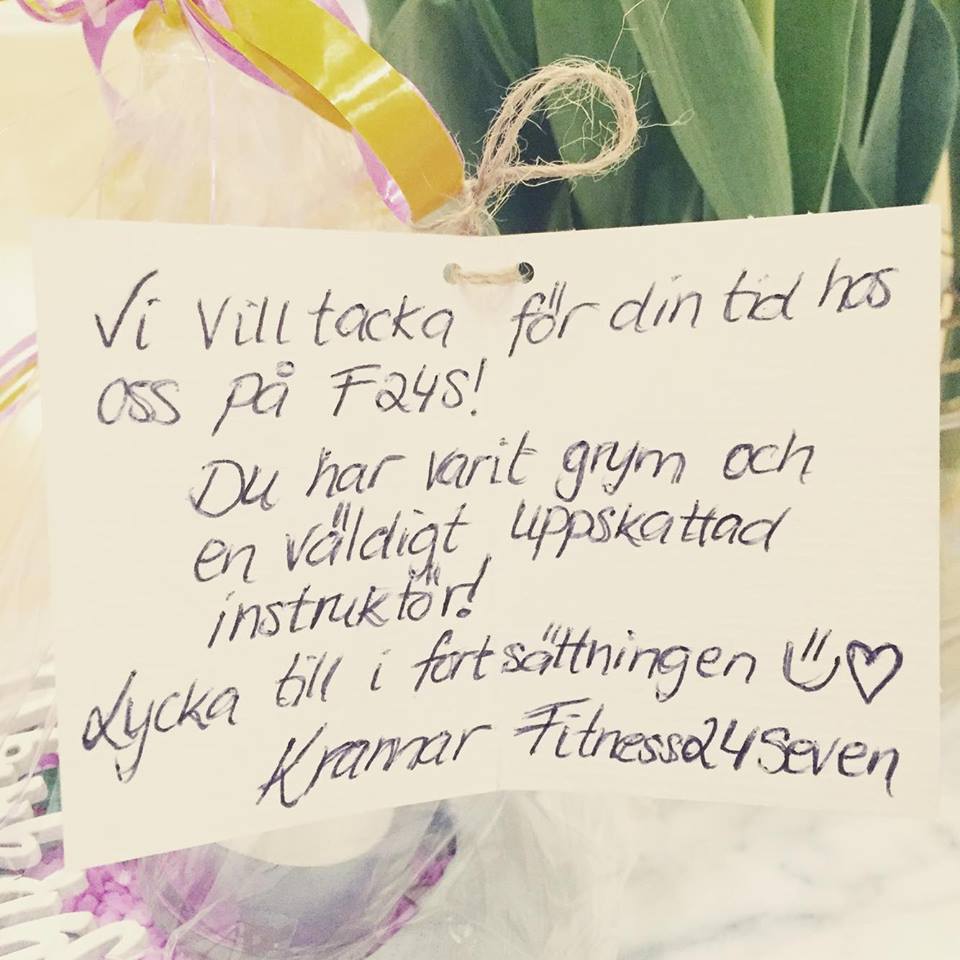 Vi vill tacka för din tid hos
oss på F24S!
Du har varit grym och
en väldigt uppskattad
instruktör!
Lycka till i fortsättningen Ü♡
Kramar Fitness24Seven